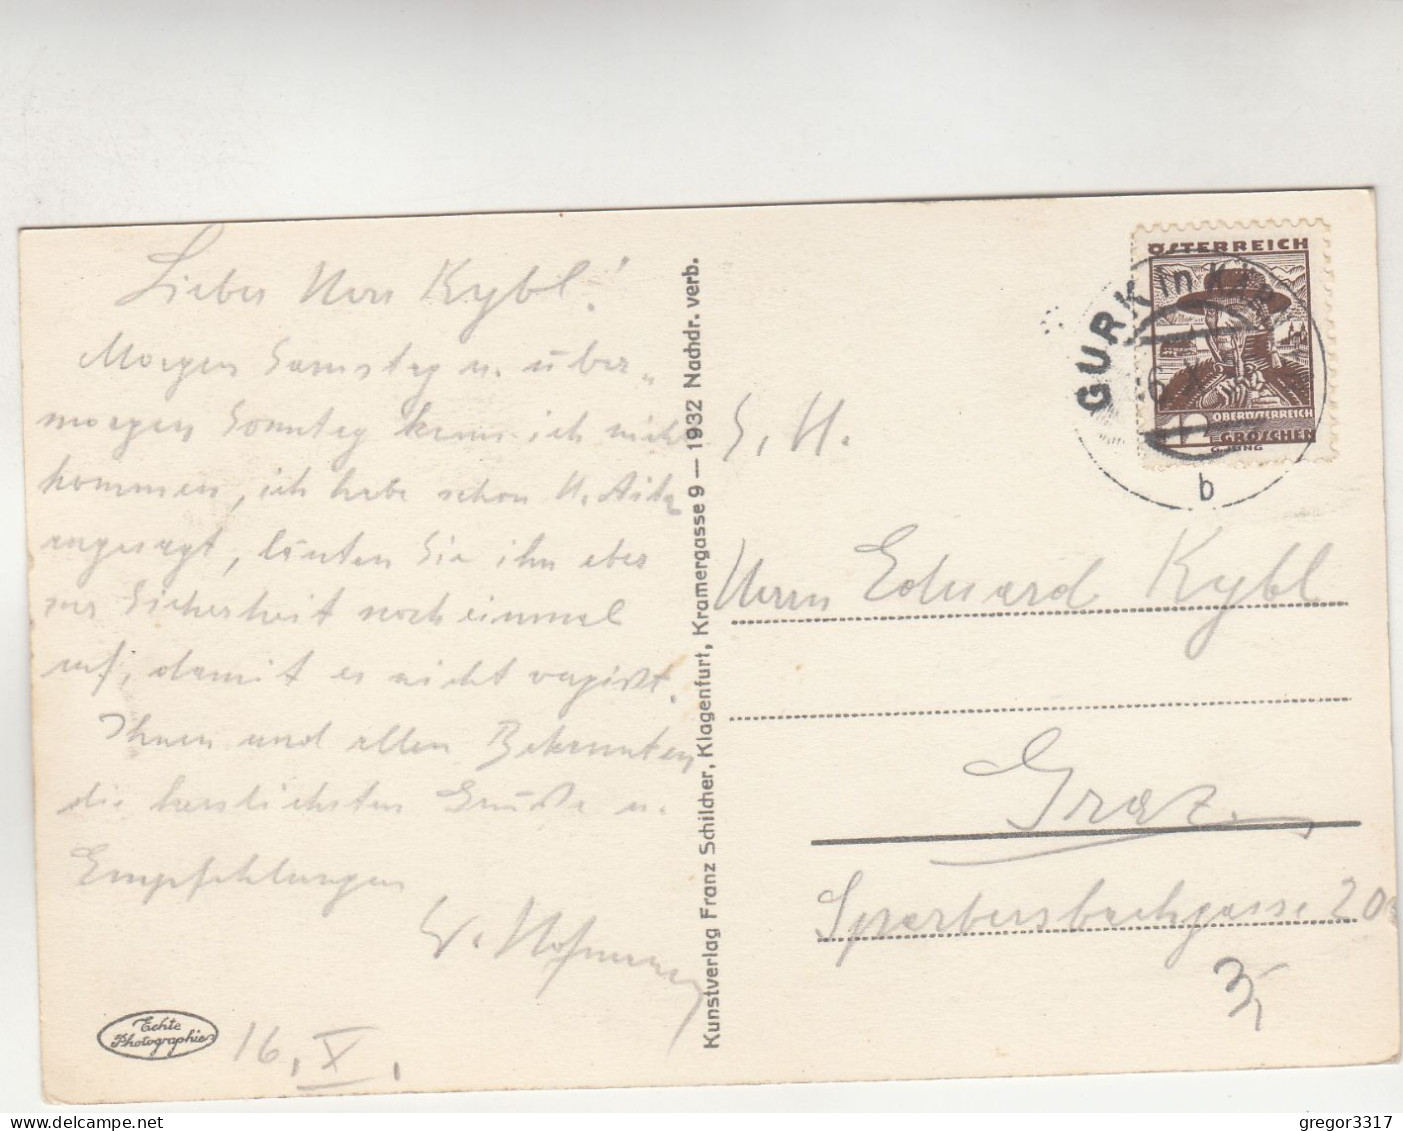 Lieber Herr Kybl!
Morgen Samstag u. über-
morgen Sonntag kann ich nicht
kommen, ich habe schon H.
angesagt, läuten Sie ihn aber
zur Sicherheit noch einmal
auf, damit er nicht vergißt.
Ihnen und allen Bekannten
die herzlichsten Grüße u.
Empfehlungen
Hofmann
16. X.
Echte
Photographie
Kunstverlag Franz Schilcher, Klagenfurt, Kramergasse 9 — 1932 Nachdr. verb.
ÖSTERREICH
OBERÖSTERREICH
12 GROSCHEN
G. JUNG
GURK in KÄRNT
b
S. H.
Herrn Eduard Kybl
Graz
Sparbersbachgasse 20
gregor3317
delcampe.net